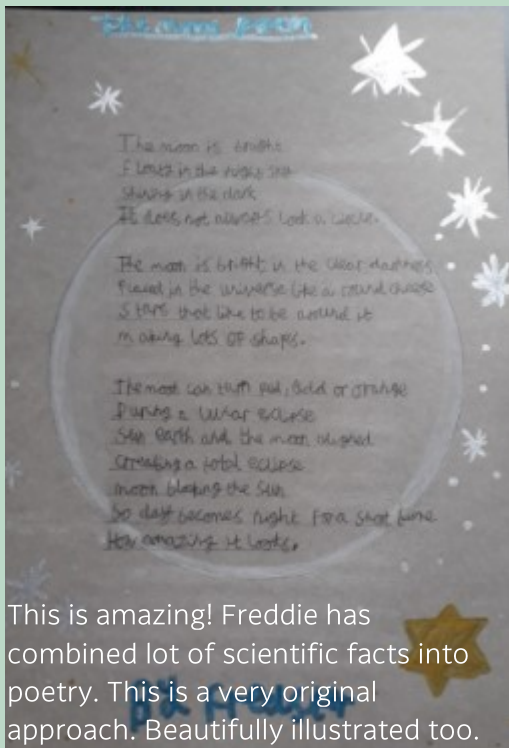 the moon poem
The moon is bright
Floats in the night sky
Shining in the dark
It does not always look a circle.
The moon is bright in the clear darkness
Placed in the universe like a round cheese
Stars that like to be around it
making lots of shapes.
The moon can turn red, gold or orange
During a lunar eclipse
Sun earth and the moon aligned
Creating a total eclipse
moon bloking the sun
So day becomes night for a shot time
How amazing it looks.
This is amazing! Freddie has
combined lot of scientific facts into
poetry. This is a very original
approach. Beautifully illustrated too.
Freddie